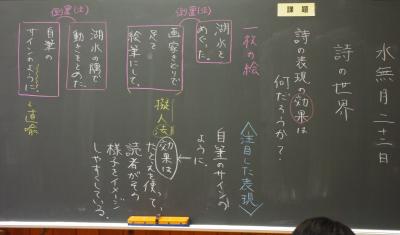 水無月二十二日
詩の世界
課題
詩の表現の効果は
何だろうか？
一枚の絵
〈注目した表現〉
自筆のサインの
ように、
効果は
たとえを使って、
読者がその
様子をイメージ
しやすくしている。
擬人法
倒置(法)
画家きどりで
足を
絵筆にして、
倒置(法)
湖水の隅で
自筆の
サインのように、
直喩